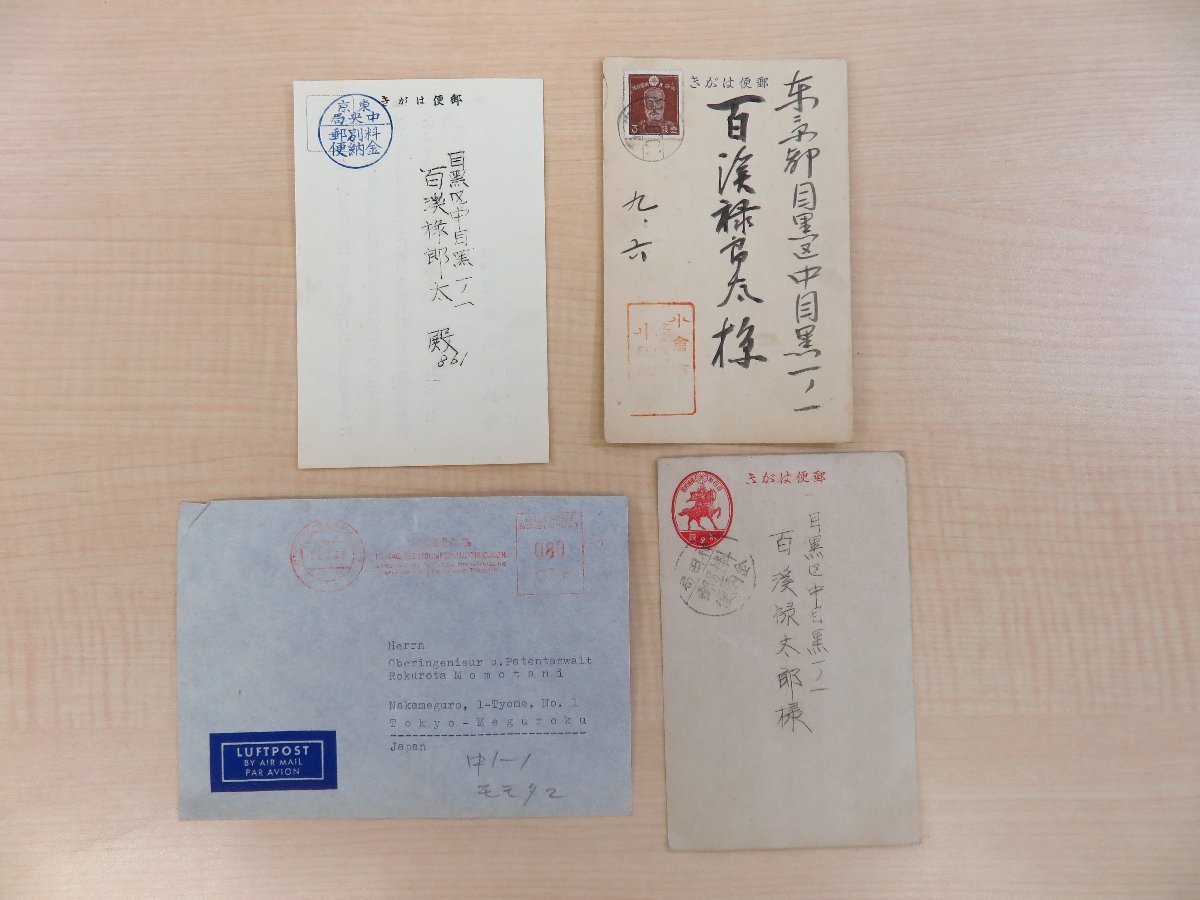 郵便はがき
東京
中央局
料金
別納
郵便
目黒区中目黒一ノ一
百渓禄郎太 殿
861
郵便はがき
东京都目黒区中目黒一ノ一
百渓禄郎太様
九・六
小倉
郵便はがき
目黒区中目黒一ノ一
百渓禄太郎様
080
Herrn
Oberingenieur u.Patentanwalt
Rokurota Momotani
Nakameguro, 1-Tyome, No. 1
Tokyo-Meguroku
Japan
中1-1
モモタニ
LUFTPOST
BY AIR MAIL
PAR AVION